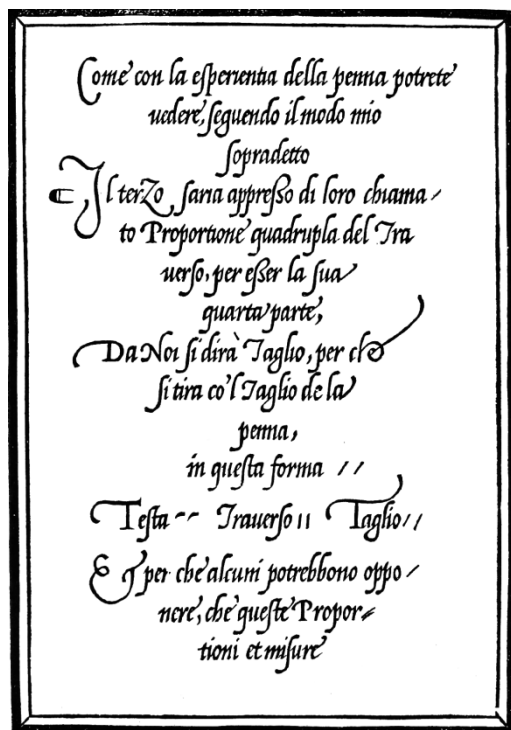 Come con la eſperientia della penna potrete
uedere, ſeguendo il modo mio
ſopradetto
Il terzo ſaria appreſſo di loro chiama/
to Proportione quadrupla del Tra
uerſo, per eſſer la ſua
quarta parte,
Da Noi ſi dirà Taglio, per che
ſi tira co'l Taglio de la
penna,
in queſta forma //
Teſta -- Trauerſo ıı Taglio //
Et per che alcuni potrebbono oppo/
nere, che queſte Propor/
tioni et miſure